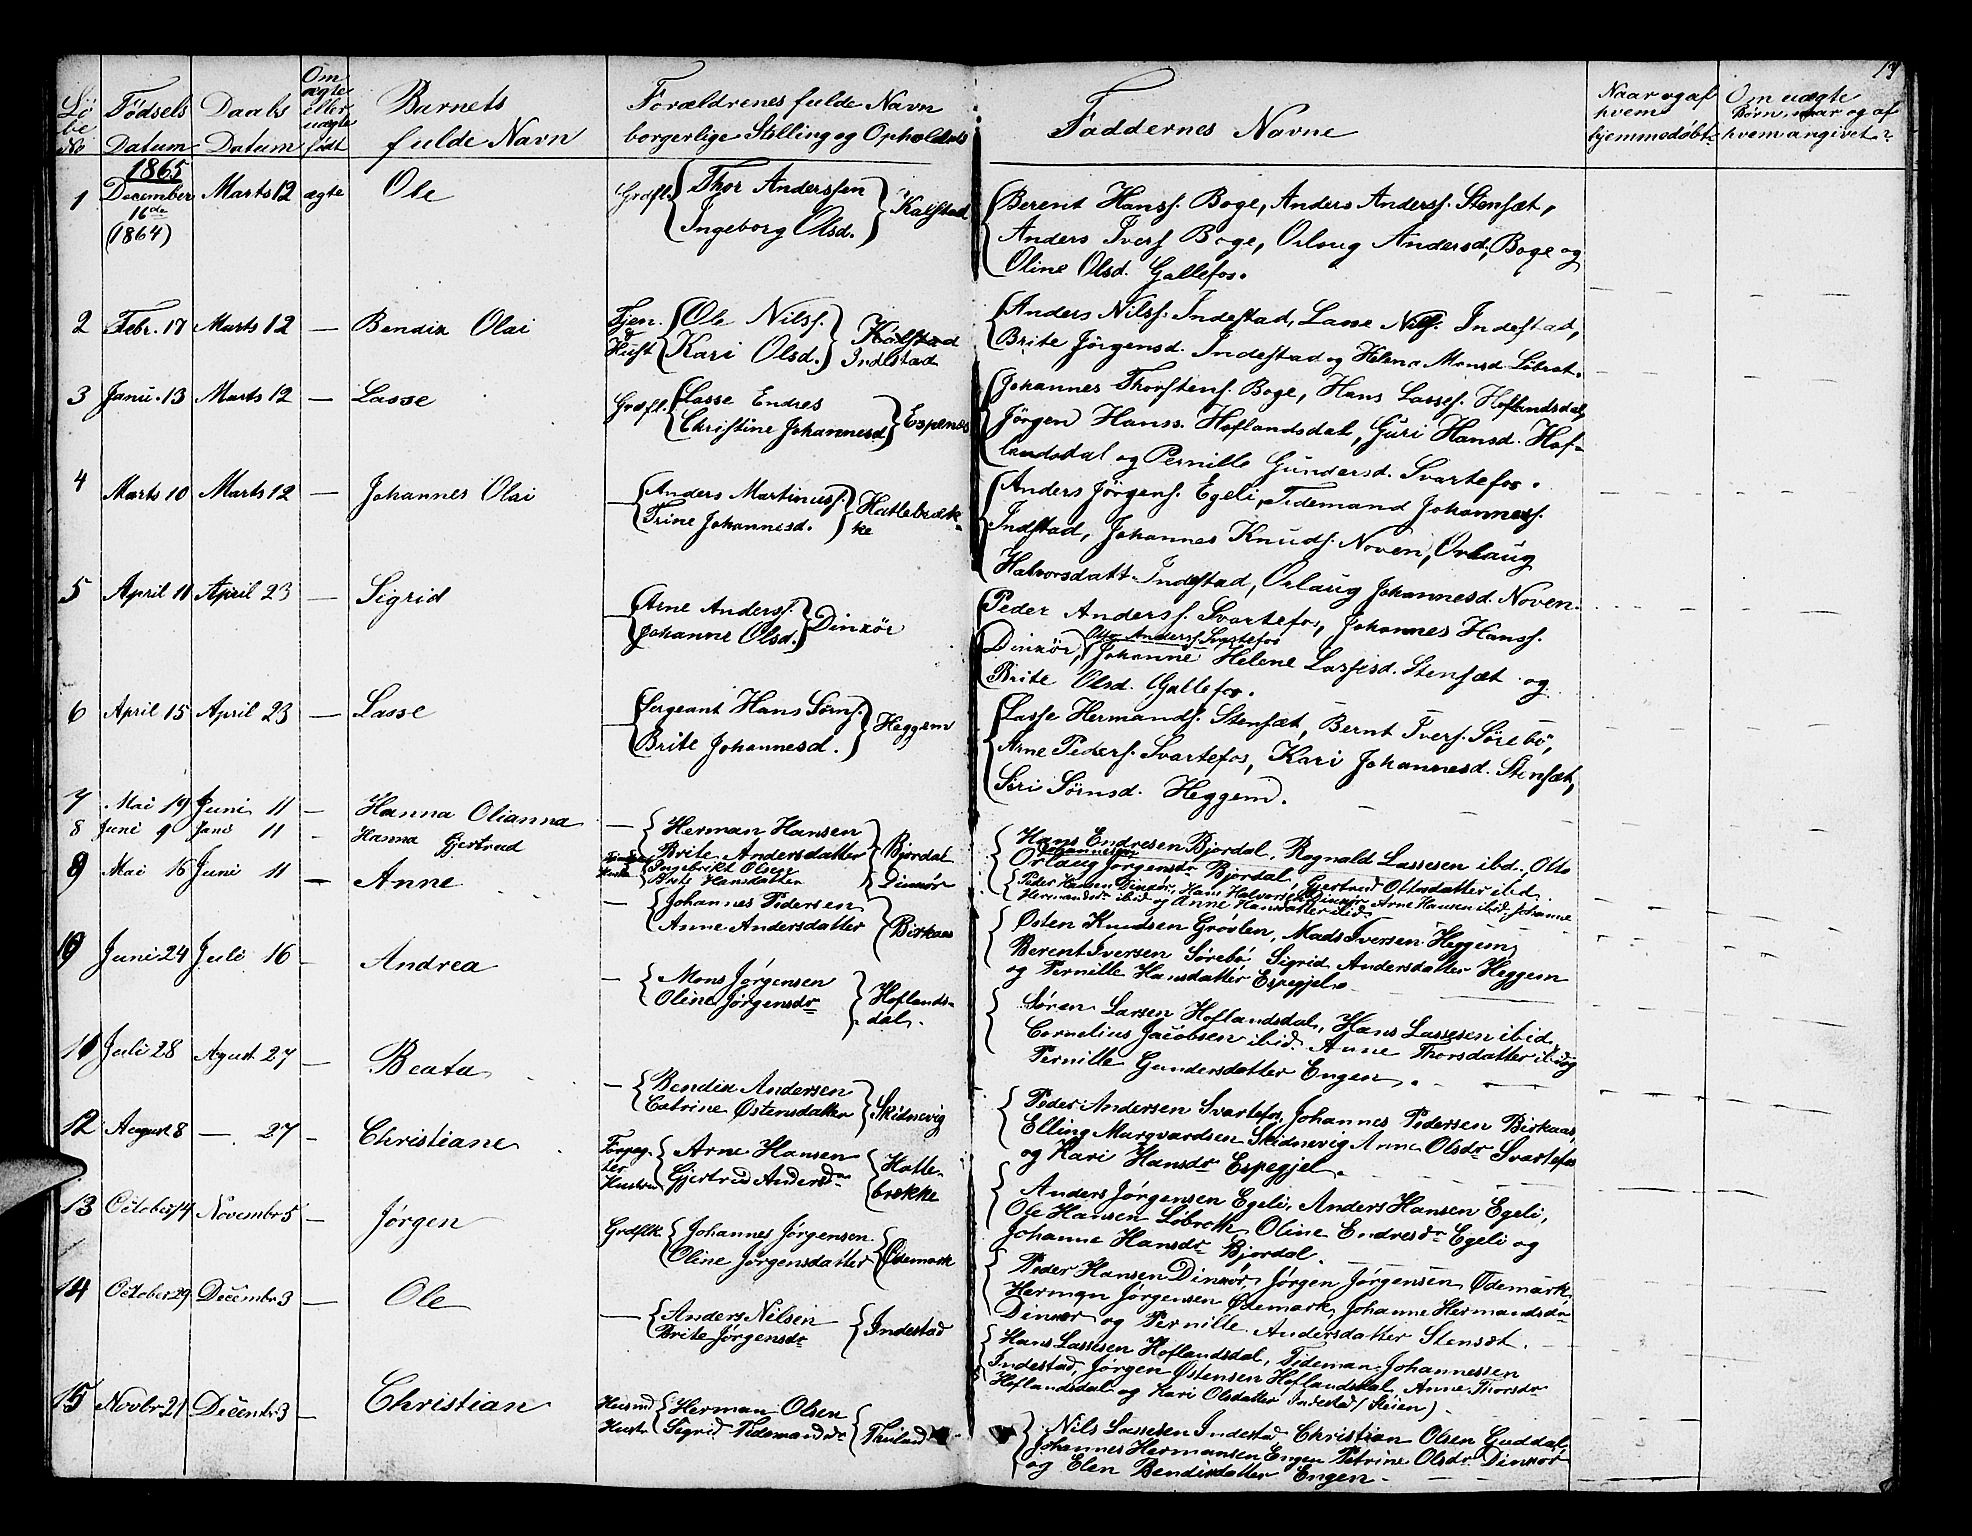 13
Löbe No | Födsels Datum | Daabs Datum | Om ægte eller uægte født | Barnets fulde Navn | Forældrenes fulde Navn borgerlige Stilling og Opholdst | Faddernes Navne | Naar og af hvem hjemmedøbt | Om uægte Börn, naar og af hvem angivet?
1865
1 | December 16de (1864) | Marts 12 | ægte | Ole | Grdfl. Thor Anderssen
Ingeborg Olsd. | Kalstad
Berent Hanss. Boge, Anders Anderss. Stensæt,
Anders Ivers Boge, Orlaug Andersd. Boge og
Oline Olsd. Gallefos.
2 | Febr. 17 | Marts 12 | — | Bendix Olai | Tjen. & Hust
Ole Nilss.
Kari Olsd. | Kalstad
Indestad
Anders Nilss. Indestad, Lasse Nilss. Indestad,
Brite Jørgensd. Indestad og Helena Monsd. Löbrot.
3 | Janu. 13 | Marts 12 | — | Lasse | Grdfl. Lasse Endres
Christine Johannesd. | Espenes
Johannes Thorstens. Boge, Hans Lasses. Hoflandsdal,
Jörgen Hanss. Hoflandsdal, Guri Hansd. Hof-
landsdal og Pernille Gundersd. Svartefos.
4 | Marts 10 | Marts 12 | — | Johannes Olai | — Anders Martinuss.
Trine Johannesd. | Hatlebræk-
ke
Anders Jörgens. Egeli, Tidemand Johanness.
Indstad, Johannes Knuds. Noven, Orlaug
Halvorsdatt. Indestad, Orlaug Johannesd. Noven.
5 | April 11 | April 23 | — | Sigrid | — Arne Anderss.
Johanne Olsd. | Dinxör
Peder Anderss. Svartefos, Johannes Hanss.
Otto Anderss. Svartefos
Dinxör, Johanne Helene Lassesd. Stensæt og
Brite Olsd. Gallefos.
6 | April 15 | April 23 | — | Lasse | — Sergeant Hans Sörns.
Brite Johannesd. | Heggem
Lasse Hermands. Stensæt, Bernt Ivers. Sörebö,
Arne Peders. Svartefos, Kari Johannesd. Stensæt,
Siri Sörnsd. Heggem.
7 | Mai 19 | Juni 11 | — | Hanna Olianna | — Herman Hansen
Brite Andersdatter | Bjordal
Hans Endresen Bjordal, Rognald Lassesen ibd., Otto
Johannesen
Orlaug Jørgensdr Bjordal, Gjertrud Ottosdatter ibid.
8 | Juni 9 | Juni 11 | — | Hanna Gjertrud | Huste
Ingebrikt Olsen
Brite Hansdatter | Dinxör
Peder Hansen Dinxør, Hans Halvorsen Dinxør, Arne Hansen ibid. Johanne
Hermandsdr ibid og Anne Hansdatter ibid.
9 | Mai 16 | Juni 11 | — | Anne | — Johannes Pedersen
Anne Andersdatter | Birkaas
Østen Knudsen Grøvlen, Mads Iversen Heggem,
Berent Iversen Sørebø Sigrid Andersdatter Heggem
og Pernille Hansdatter Espegjel.
10 | Juni 24 | Juli 16 | — | Andrea | — Mons Jørgensen
Oline Jørgensdr | Hoflands-
dal.
Søren Larsen Hoflandsdal, Hans Lassesen ibid,
Cornelius Jacobsen ibid. Anne Thorsdatter ibid og
Pernille Gundersdatter Engen.
11 | Juli 28 | Agust 27 | — | Beata | — Bendix Andersen
Catrine Østensdatter | Skidnevig
Peder Andersen Svartefos, Johannes Pedersen Birkaas,
Elling Margvardsen Skidnevig Anne Olsdr Svartefos
og Kari Hansdr Espegjel.
12 | August 8 | — 27 | — | Christiane | Forpag-
ter
Hustru
Arne Hansen
Gjertrud Andersdr | Hatle-
brekke
Anders Jørgensen Egeli, Anders Hansen Egeli,
Ole Hansen Løbroth, Oline Endresdr Egeli og
Johanne Hansdr Bjordal.
13 | October 14 | Novembr 5 | — | Jørgen | Grdflk. Johannes Jørgensen
Oline Jørgensdatter | Ødemark
Peder Hansen Dinxør, Jørgen Jørgensen Ødemark,
Herman Jørgensen Ødemark, Johanne Hermandsdr
Dinxør og Pernille Andersdatter Stensæt.
14 | October 29 | Decembr 3 | — | Ole | — Anders Nilsen
Brite Jørgensdr | Indestad
Hans Lassesen Hoflandsdal, Tideman Johannessen
Indestad, Jørgen Østensen Hoflandsdal, Anne Thorsdr
Hoflandsdal og Kari Olsdatter Indestad (Steien).
15 | Novbr 21 | Decembr 3 | — | Christian | Husmd
Hust.
Herman Olsen
Sigrid Tidemandsdr
Nils Lassesen Indestad Christian Olsen Guddal,
Johannes Hermansen Engen Petrine Olsdr Dinxør
og Elen Bendixdatter Engen.